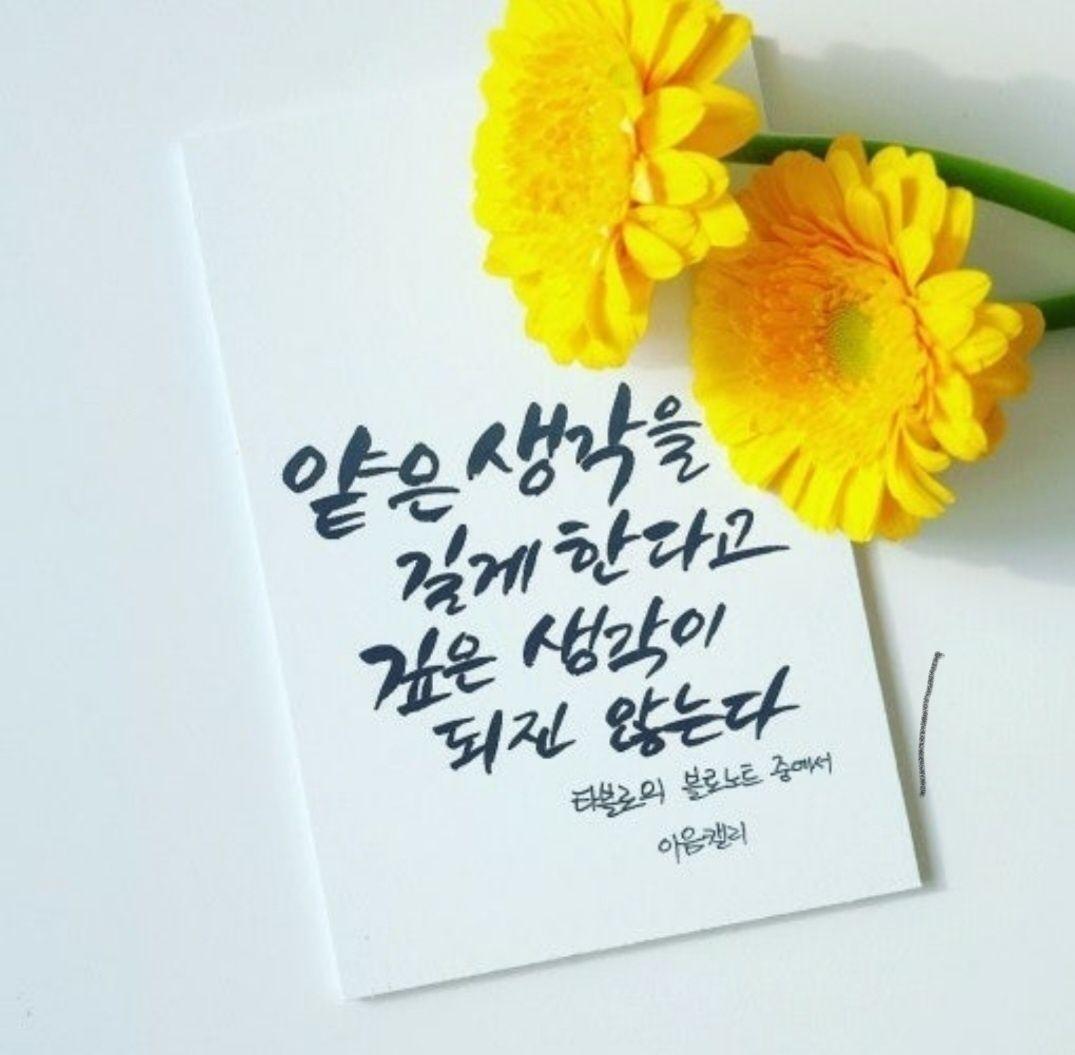 얕은 생각을
길게 한다고
깊은 생각이
되진 않는다
타블로의 블로노트 중에서
이음캘리